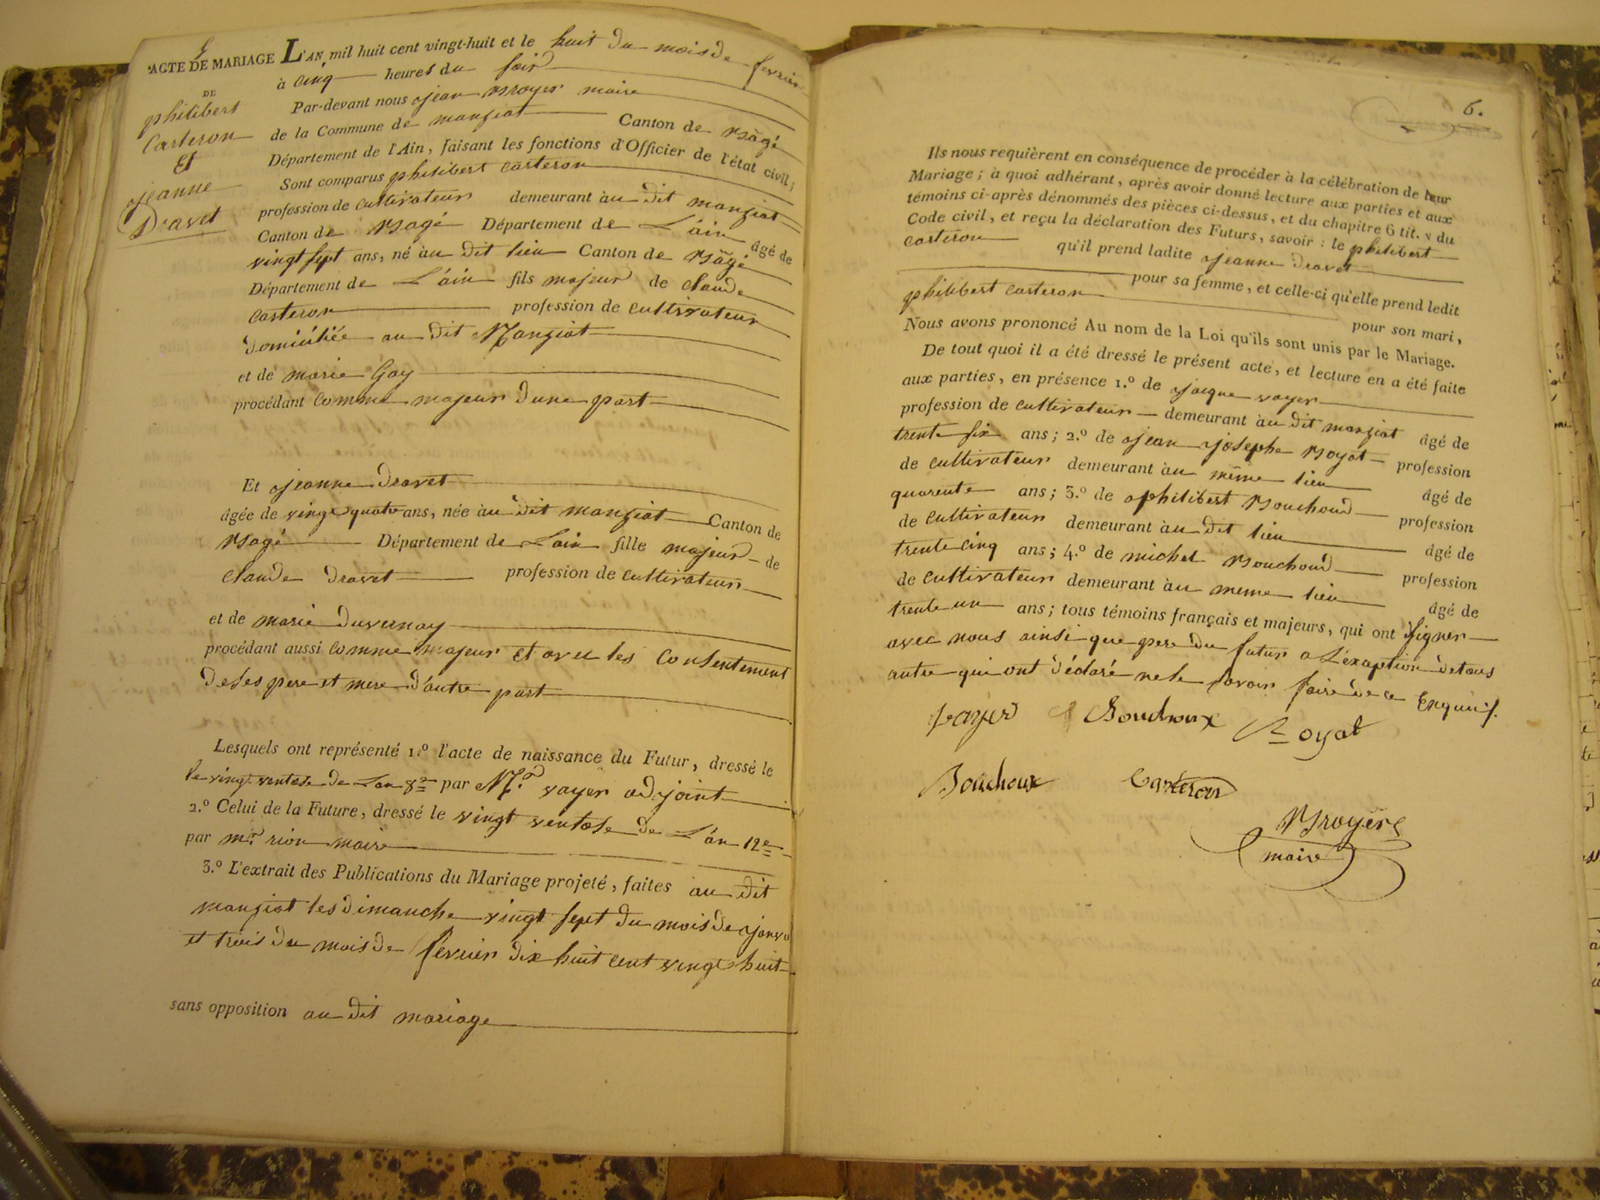 ACTE DE MARIAGE
DE
philibert
Carteron
Et
jeanne
Dravet
L'AN mil huit cent vingt-huit et le huit du mois de fevrier
à cinq heures du soir
Par-devant nous jean Broyer maire
de la Commune de manziat Canton de Bâgé
Département de l'Ain, faisant les fonctions d'Officier de l'état civil;
Sont comparus philibert Carteron
profession de cultivateur demeurant au dit manziat
Canton de Bagé Département de L'ain âgé de
vingt sept ans, né au dit lieu Canton de Bâgé
Département de L'ain fils majeur de claude
Carteron profession de cultivateur
domiciliée au dit Manziat
et de marie Gay
procédant comme majeur d'une part
Et jeanne dravet
âgée de vingt quatre ans, née au dit manziat Canton de
Bagé Département de Lain fille majeur de
claude dravet profession de cultivateur
et de marie duvernay
procédant aussi comme majeur et avec les Consentement
de ses pere et mere d'autre part
Lesquels ont représenté 1.º l'acte de naissance du Futur, dressé le
le vingt ventose de Lan 8e par Mr. voyer adjoint
2.º Celui de la Future, dressé le vingt ventose de L'án 12e
par mr. rion maire
3.º L'extrait des Publications du Mariage projeté, faites au dit
manziat les dimanche vingt sept du mois de janvi
et trois du mois de février dix huit cent vingt huit
sans opposition au dit mariage
6.
Ils nous requièrent en conséquence de procéder à la célébration de leur
Mariage; à quoi adhérant, après avoir donné lecture aux parties et aux
témoins ci-après dénommés des pièces ci-dessus, et du chapitre 6 tit. v du
Code civil, et reçu la déclaration des Futurs, savoir: le philibert
Carteron qu'il prend ladite jeanne dravet
pour sa femme, et celle-ci qu'elle prend ledit
philibert carteron pour son mari,
Nous avons prononcé Au nom de la Loi qu'ils sont unis par le Mariage.
De tout quoi il a été dressé le présent acte, et lecture en a été faite
aux parties, en présence 1.º de jacque voyer
profession de cultivateur demeurant au dit manziat âgé de
trente six ans; 2.º de jean josephe Boyat profession
de cultivateur demeurant au même lieu âgé de
quarente ans; 3.º de philibert Bouchoud profession
de cultivateur demeurant au dit lieu âgé de
trente cinq ans; 4.º de michel Bouchoud profession
de cultivateur demeurant au meme lieu âgé de
trente un ans; tous témoins français et majeurs, qui ont signer
avec nous ainsi que pere du futur a L'exaption de tous
autre qui ont déclaré ne le savoir faire de ce Enquis.
voyer Bouchoux Boyat
Bouchoux Carteron
Broyer
maire